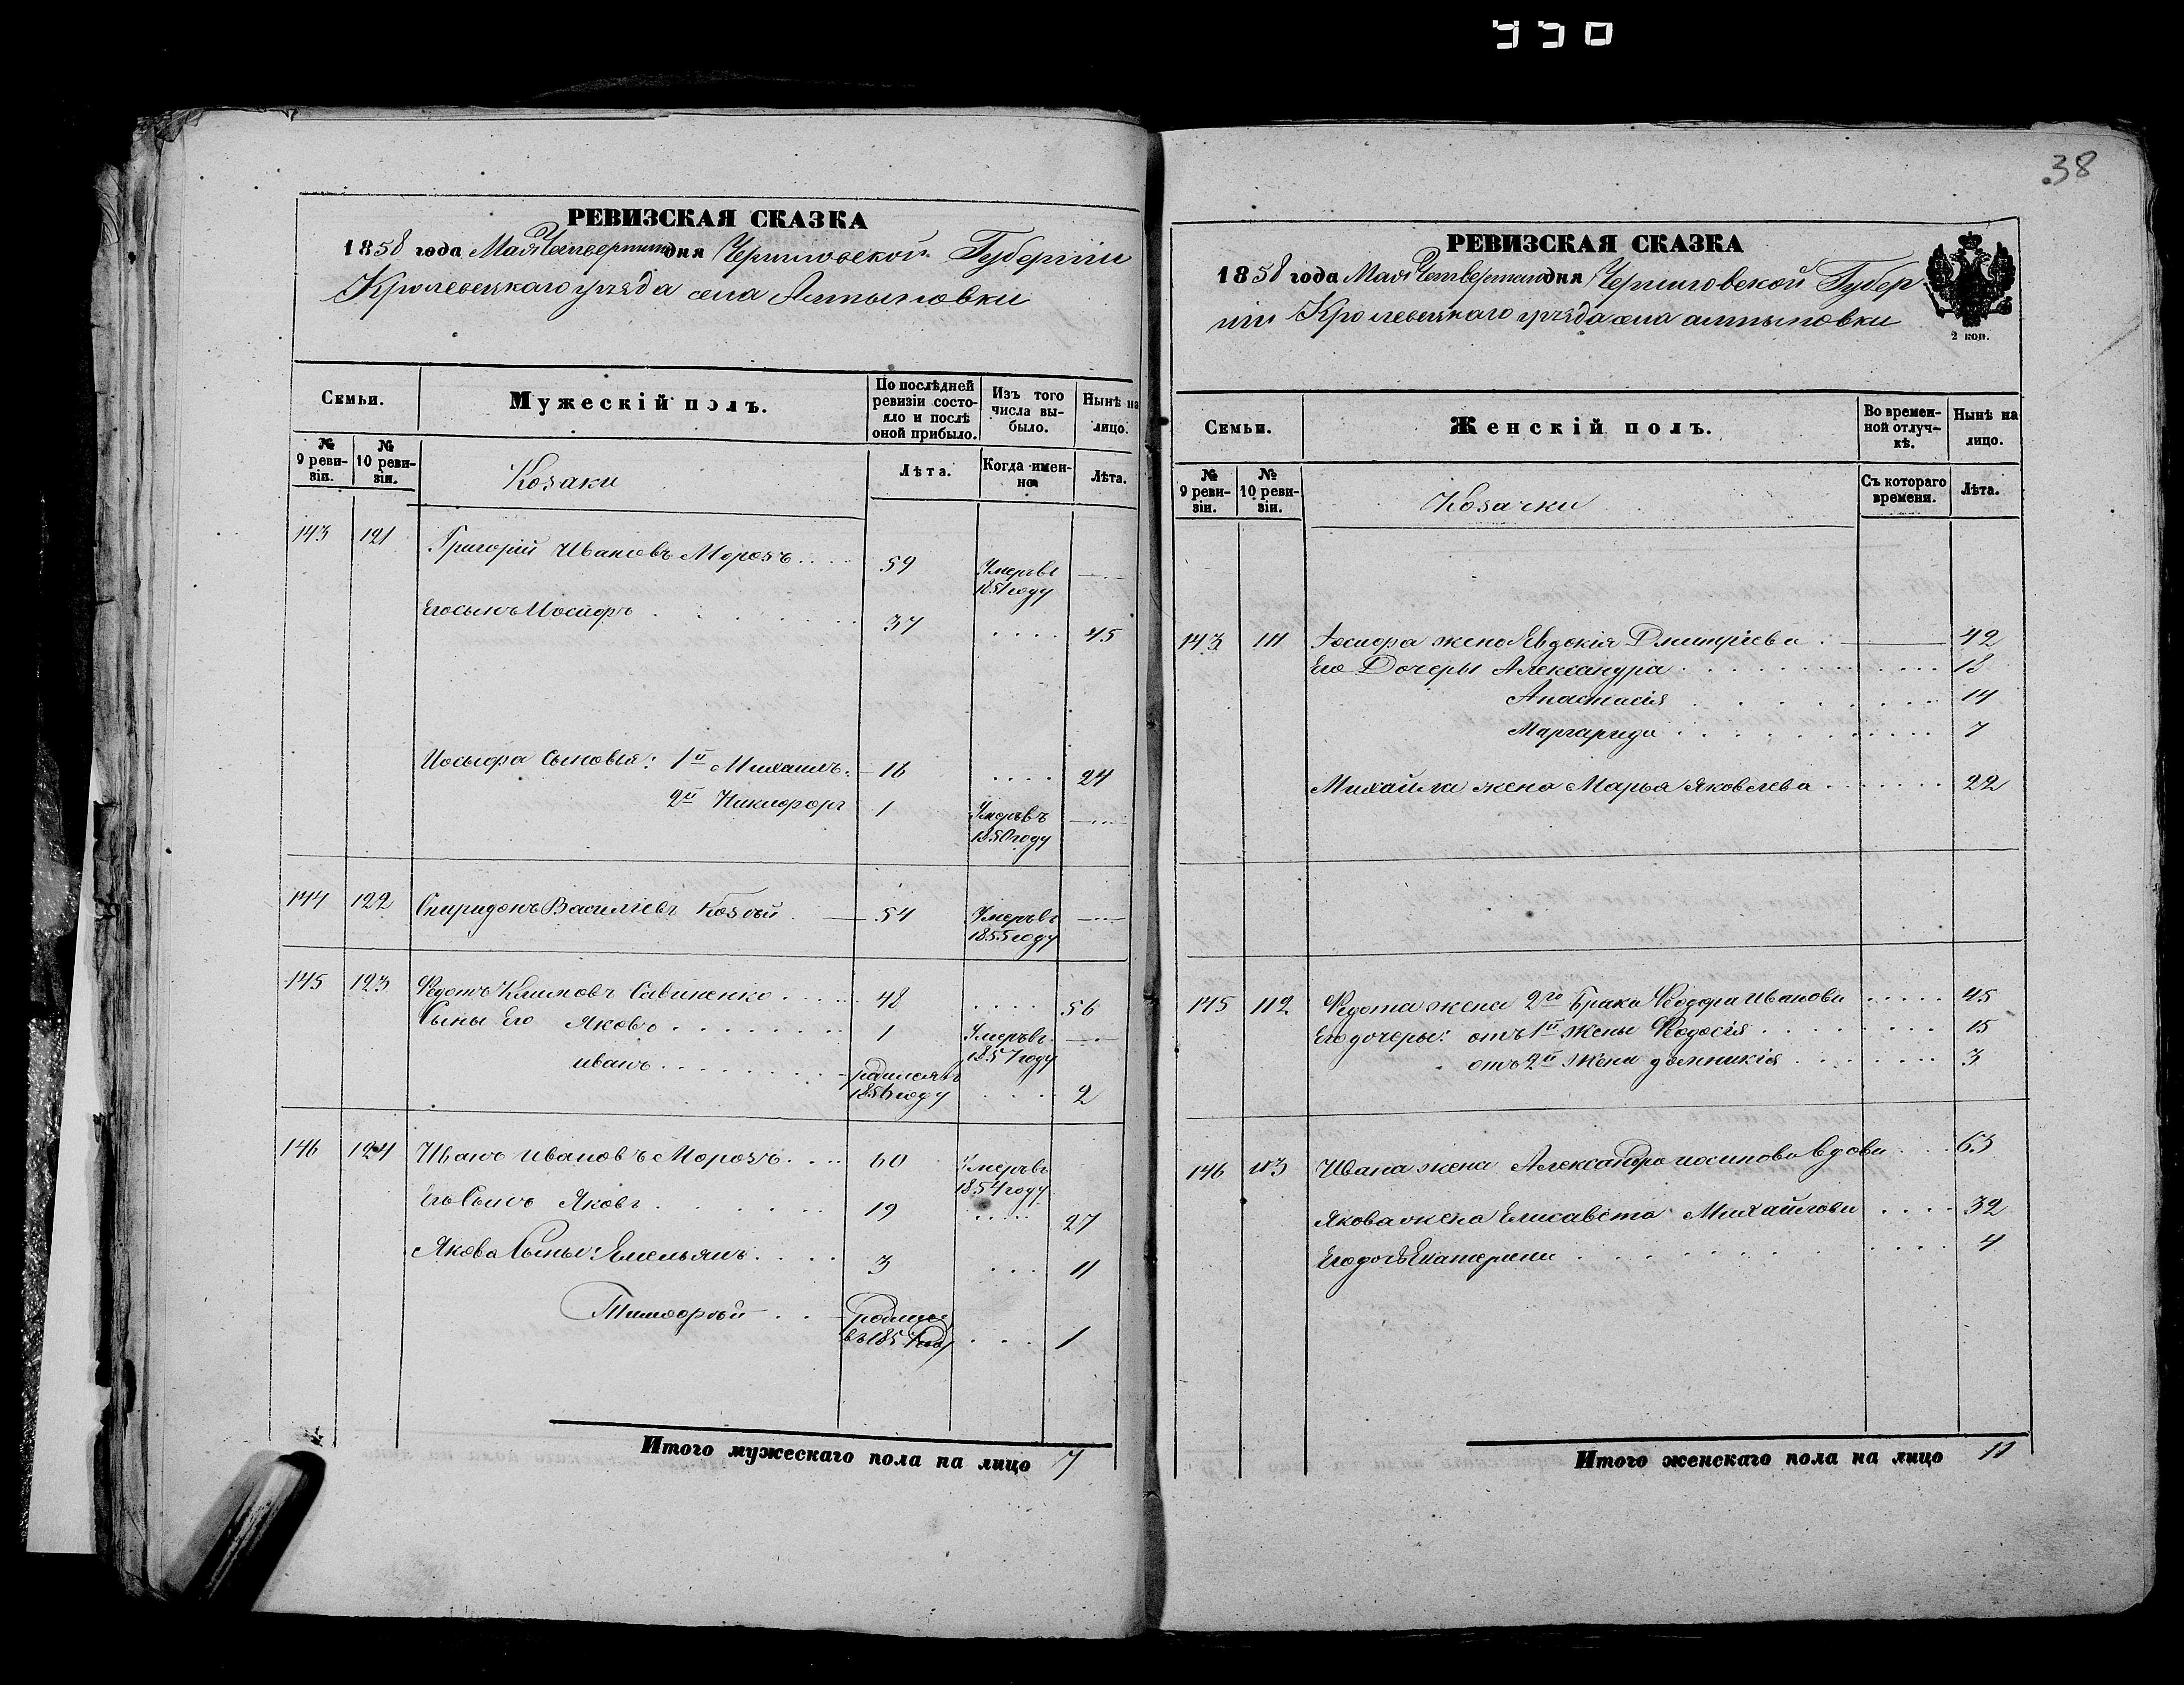 990
38
РЕВИЗСКАЯ СКАЗКА
1858 года Мая Четвертаго дня Черниговской Губерніи
Кролевецкаго уѣзда села Алтыновки
Семьи.
Мужескій полъ.
По послѣдней ревизіи состояло и послѣ оной прибыло.
Изъ того числа выбыло.
Нынѣ на лицо.
№ 9 ревизіи.
№ 10 ревизіи.
Козаки
Лѣта.
Когда именно
Лѣта.
143 121 Григорій Ивановъ Морозъ 59 Умеръ въ 1851 году —
Его сынъ Иосифъ 37 45
Иосифа Сыновья: 1й Михаилъ 16 24
2й Никифоръ 1 Умеръ въ 1850 году —
144 122 Спиридонъ Василіевъ Козъй 54 Умеръ въ 1855 году —
145 123 Федотъ Климовъ Савиненко 48 56
Сыны Его Яковъ 1 Умеръ въ 1857 году —
иванъ родился въ 1856 году 2
146 124 Иванъ ивановъ Морозъ 60 Умеръ въ 1854 году
Его Сынъ Яковъ 19 27
Якова Сыны: Емельянъ 3 11
Тимофъй родился въ 1857 году 1
Итого мужескаго пола на лицо 7
РЕВИЗСКАЯ СКАЗКА
1858 года Мая Четвертаго дня Черниговской Губер
ніи Кролевецкаго уѣзда села алтыновки
2 коп.
Семьи.
Женскій полъ.
Во временной отлучкѣ.
Нынѣ на лицо.
№ 9 ревизіи.
№ 10 ревизіи.
Козачки
Съ котораго времени.
Лѣта.
143 111 Иосифа жена Евдокія Дмитріева — 42
Его Дочеры Александра 18
Анастасія 14
Маргарида 7
Михайла жена Марья Яковлева 22
145 112 Федота жена 2го брака Феодора Иванова 45
Его дочеры: отъ 1й жены Феодосія 15
отъ 2й жены домникія 3
146 113 Ивана жена Александра иосипова вдова 63
Якова жена Елисавета Михайлова 32
Его дочь Екатерина 4
Итого женскаго пола на лицо 11